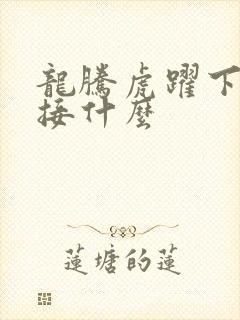 龍騰虎躍下
接什麼
蓮塘的蓮